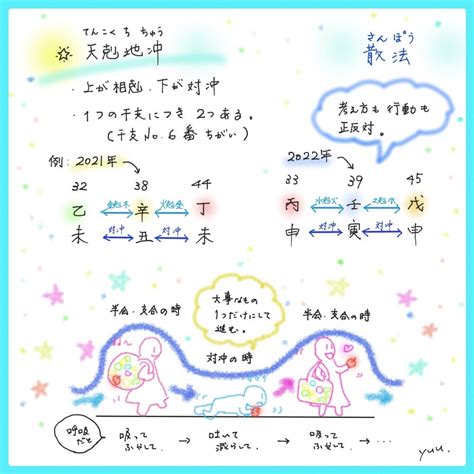 てんこくちちゅう
天剋地冲
さんぽう
散法
・上が相剋、下が対冲
・1つの干支につき 2つある。
(干支No.6番ちがい)
考え方も行動も
正反対。
例:2021年
32 38 44
金剋木 火剋金
乙 辛 丁
対冲 対冲
未 丑 未
2022年
33 39 45
水剋火 土剋水
丙 壬 戊
対冲 対冲
申 寅 申
大事なもの
1つだけにして
進む。
半会・支合の時
対冲の時
半会・支合の時
呼吸
だと
吸って
ふやして
→
吐いて
減らして
→
吸って
ふやして
→ …
yuu.